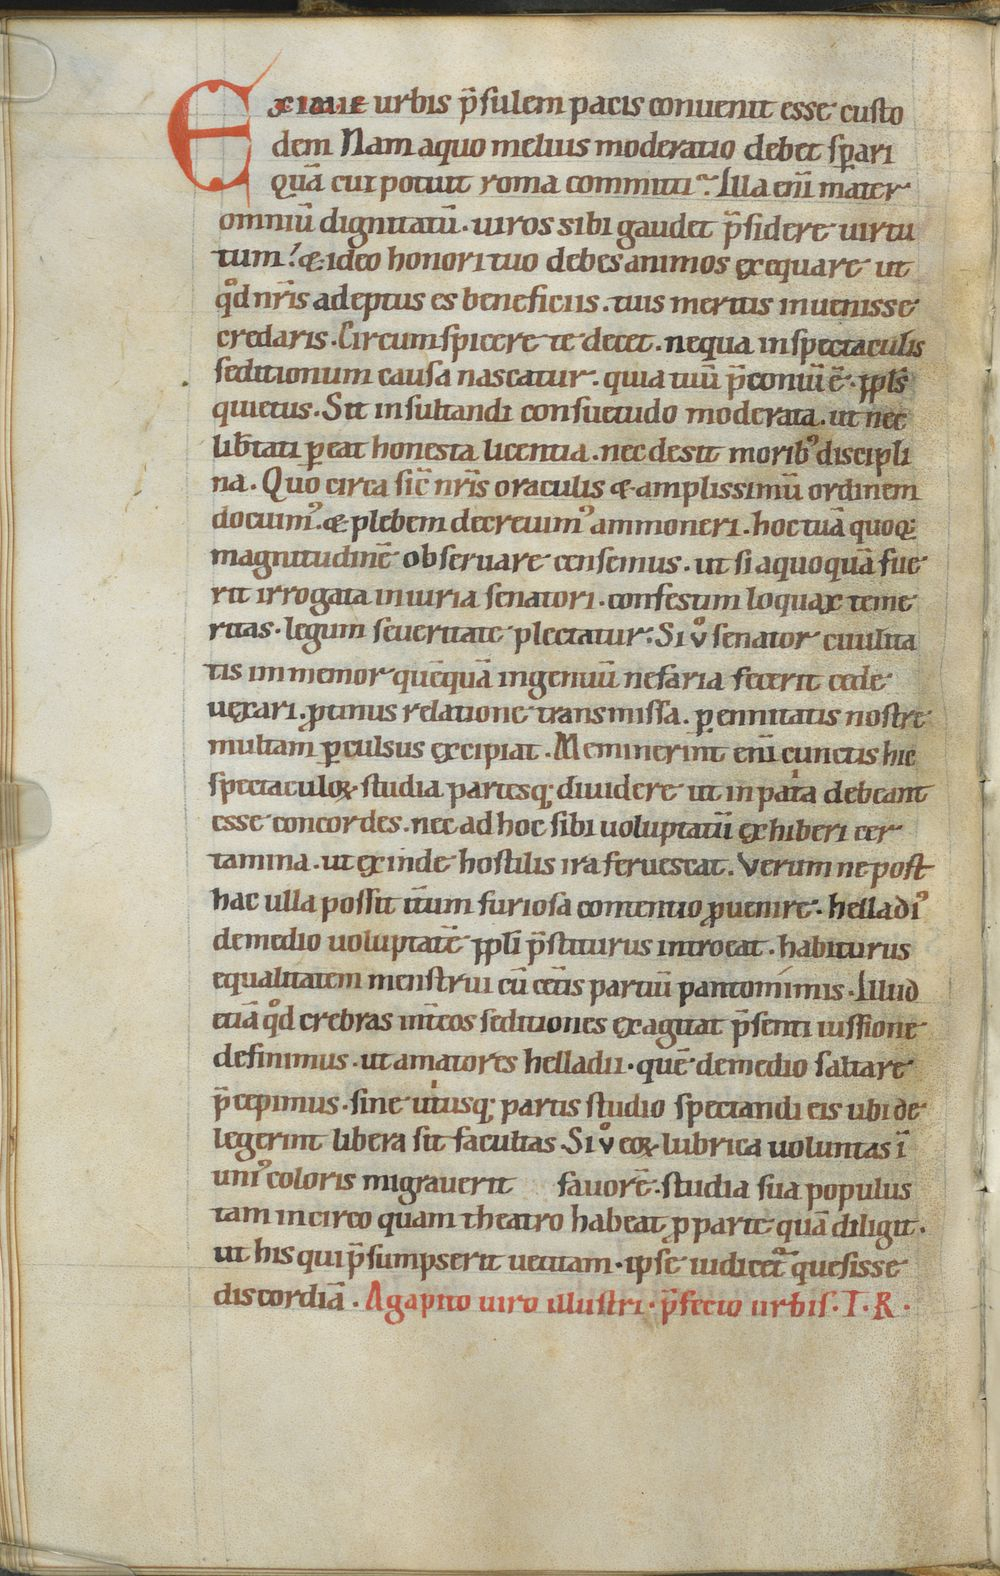 Eximie urbis p̄sulem pacis conuenit esse custo
dem Nam a quo melius moderatio debet sꝑari
quā cui potuit roma committi? Illa enī mater
omniū dignitatū. uiros sibi gaudet p̄sidere uirtu
tum? & ideo honori tuo debes animos exequare ut
qd̊ nr̄is adeptus es beneficiis. tuis meritis inuenisse
credaris. Circumspicere te decet. nequa in spectaculis
seditionum causa nascatur. quia tuū p̄coniū ē. ppl̄s
quietus. Sit insultandi consuetudo moderata. ut nec
lib̄tati ꝑeat honesta licentia. nec desit morib᾿ discipli
na. Quo circa sic̄ nr̄is oraculis & amplissimū ordinem
docuim᾿. & plebem decreuim᾿ ammoneri. hoc tuā quoq;
magnitudinē obseruare censemus. ut si a quoquā fue
rit irrogata iniuria senatori. confestim loquax teme
ritas. legum seueritate plectatur. Si v̊ senator ciuilita
tis immemor quēquā ingenuū nefaria fecerit cede
uexari. ꝓtinus relatione transmissa. ꝑennitatis nostre
multam ꝑculsus excipiat. Meminerint enī cunctis hic
spectaculoꝝ studia partesq; diuidere ut in pat͛a debeant
esse concordes. nec ad hoc sibi uoluptatū exhiberi cer
tamina. ut exinde hostilis ira feruescat. Verum ne post
hac ulla possit it̄um furiosa contentio ꝓuenire. helladi᾿
de medio uoluptatē ppl̄i p̄stiturus introeat. habiturus
equalitatem menstrui cū cet̄is partiū pantomimis. Illud
etiā qd̊ crebras int̄ eos seditiones exagitat p̄senti iussione
definimus. ut amatores helladii. quē de medio saltare
p̄cepimus. sine ut͛usq; partis studio spectandi eis ubi de
legerint libera sit facultas. Si v̊ eoꝝ lubrica uoluntas ī
uni᾿ coloris migrauerit fauorē. studia sua populus
tam in circo quam theatro habeat ꝓ parte quā diligit.
ut his qui p̄sumpserit uetitam. ipse iudicet᷑ quesisse
discordiā. Agapito uiro illustri. p̄fecto urbis. T. R.